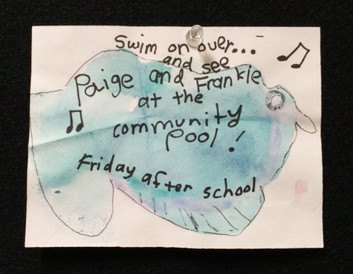 Swim on over...
and see
Paige and Frankie
at the
community
pool!
Friday after school